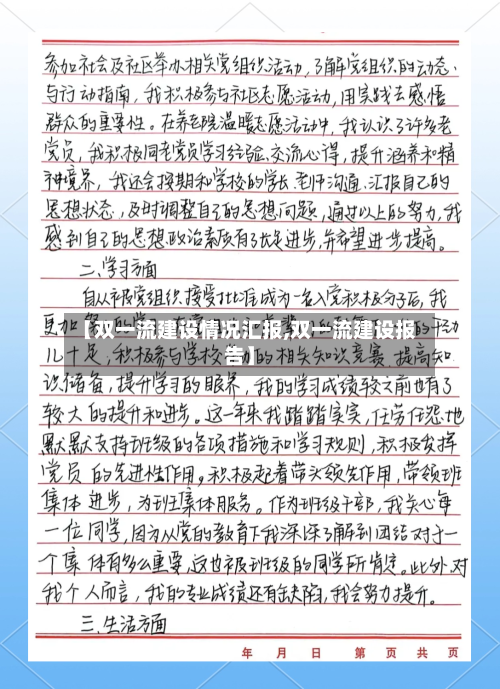 参加社会及社区举办相关党组织活动,了解党组织的动态·
与行动指南,我积极参与社区志愿活动,用实践去感悟
群众的重要性。在养老院温暖志愿活动中,我认识了许多老
党员,我积极同老党员学习经验、交流心得,提升涵养和精
神境界,我还会按期和学校的学长、老师沟通、汇报自己的
思想状态,及时调整自己的思想问题,通过以上的努力,我
感到自己的思想政治素质有了长足进步,并希望进步提高。
二、学习方面
自从被党组织接受批准成为一名入党积极分子后,我
【双一流建设情况汇报,双一流建设报
告】
儿十足,积极参与学校 的相关知识竞赛,提高知
识储备,提升学习的眼界,我的学习成绩较之前也有了
较大的提升和进步。这一年来我踏踏实实,任劳任怨地
默默支持班级的各项措施和学习规则,积极发挥
党员的先进性作用,积极起着带头领先作用,带领班
集体进步,为班集体服务。作为班级干部,我关心每
一位同学,因为从党的教育下我深深了解到团结对于一
个集体有多么重要,这也被班级的同学所肯定。此外,对
我个人而言,我的专业成绩还有缺陷,我会努力提升。
三、生活方面
年 月 日 第 页 共 页